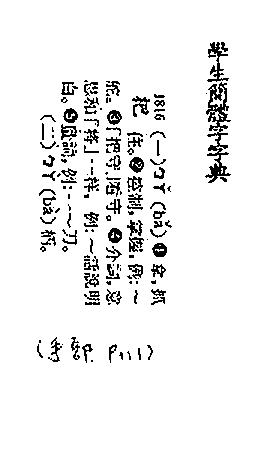 學生簡體字字典
1816 (一)ㄅㄚˇ (bǎ) ❶拿,抓
把 住。❷控制,掌握,例:～
舵。❸「把守」看守。❹介詞,意
思和「將」一樣,例:～話說明
白。❺量詞,例:一～刀。
(二)ㄅㄚˋ (bà) 柄。
(手部 P111)